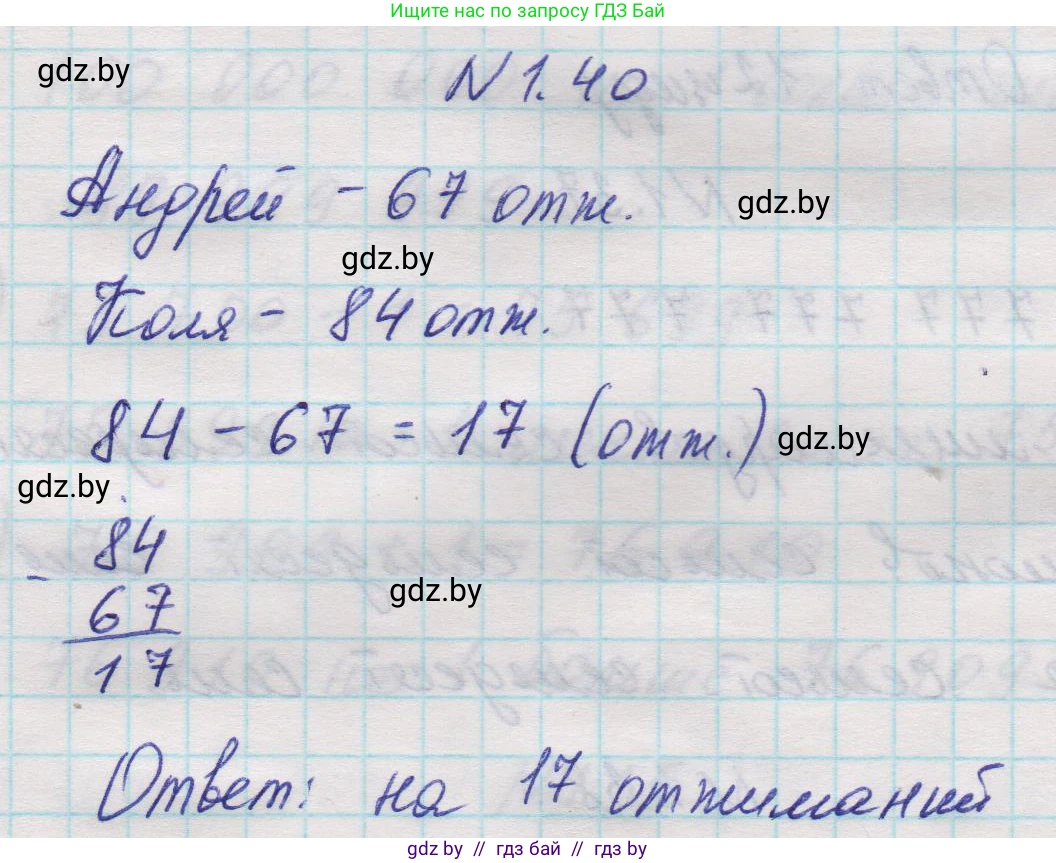 Ищите нас по запросу ГДЗ Бай
gdz.by
N 1.40
Андрей - 67 отж.
gdz.by
gdz.by
Коля - 84 отж.
84 - 67 = 17 (отж.)
gdz.by
gdz.by
84
-
67
gdz.by
17
Ответ: на 17 отжиманий
gdz.by // гдз бай // gdz by